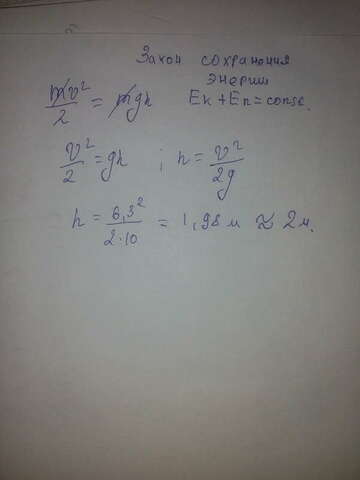 Закон сохранения
энергии
mv²/2 = mgh Eк + Eп = const.
v²/2 = gh ; h = v²/2g
h = 6,3²/2·10 = 1,98 м ≈ 2 м.